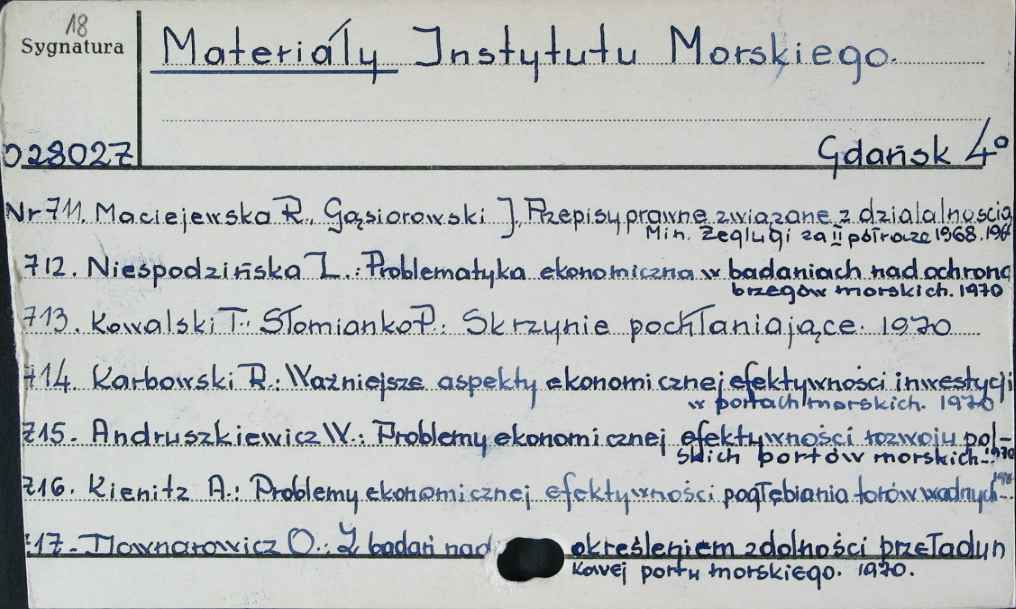 18
Sygnatura
Materiały Instytutu Morskiego.
028027
Gdańsk 4°
Nr 711. Maciejewska R., Gąsiorowski J. Przepisy prawne związane z działalnością
Min. Żeglugi za II półrocze 1968.
712. Niespodzińska L.: Problematyka ekonomiczna w badaniach nad ochroną
brzegów morskich. 1970
713. Kowalski T.: Słomianko P.: Skrzynie pochłaniające. 1970
714. Karbowski R.: Ważniejsze aspekty ekonomicznej efektywności inwestycji
w portach morskich. 1970
715. Andruszkiewicz W.: Problemy ekonomicznej efektywności rozwoju pol-
skich portów morskich. 1970
716. Kienitz A.: Problemy ekonomicznej efektywności pogłębiania torów wodnych.
717. O.: Z badań nad określeniem zdolności przeładun
kowej portu morskiego. 1970.